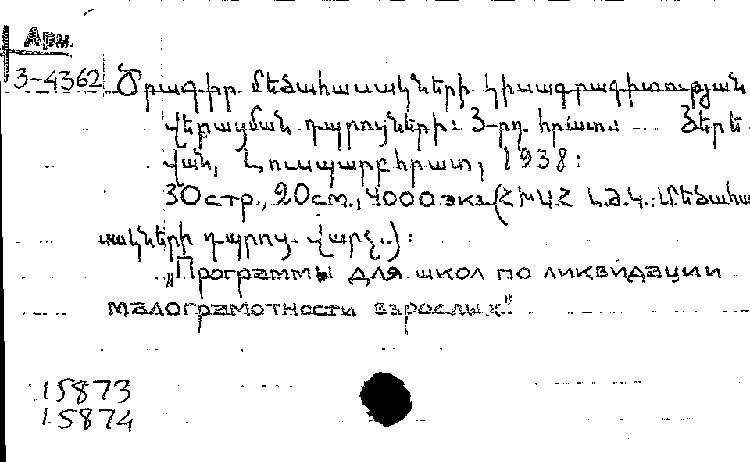 Арм.
3-4362 Ծրագիր մեծահասակների կիսագրագիտության
վերացման դպրոցների: 3-րդ հրատ. Երե
վան, Լուսպարբհրատ, 1938:
30стр., 20см., 4000 экз. (ՀԽՍՀ Լ.Ժ.Կ. Մեծահա
սակների դպրոց. վարչ.):
„Программы для школ по ликвидации
малограмотности взрослых".
15873
15874